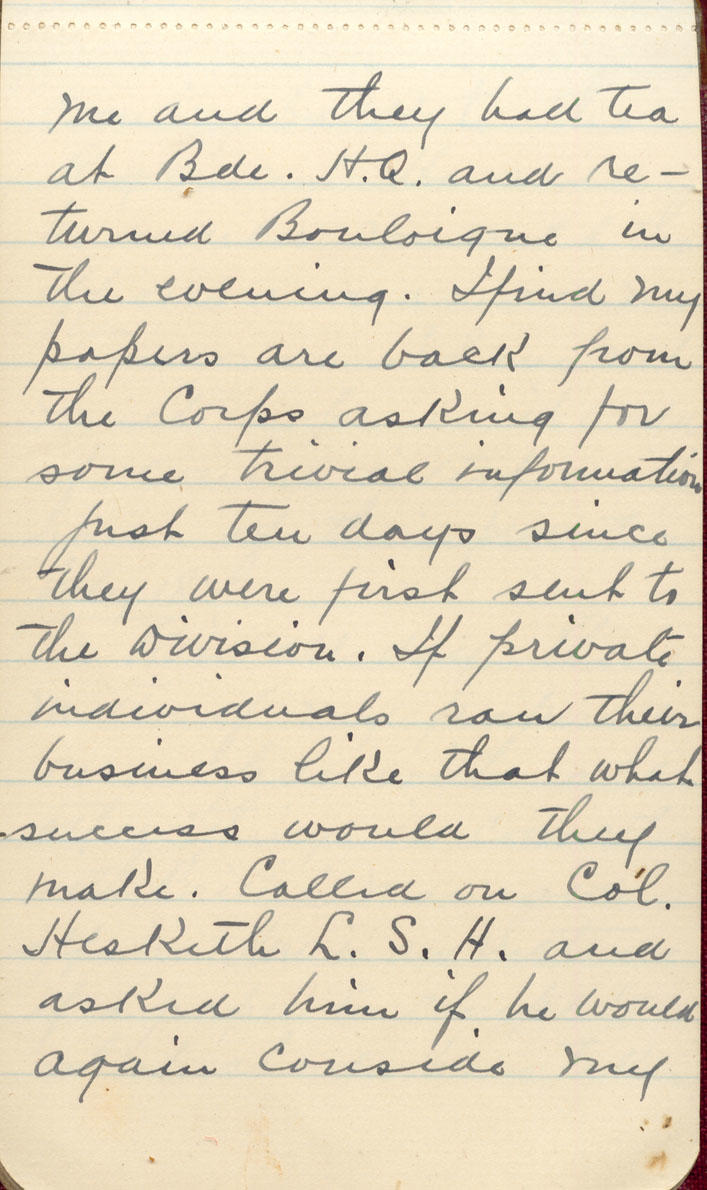 me and they had tea
at Bde. H.Q. and re-
turned Bouloigne in
the evening. I find my
papers are back from
the Corps asking for
some trivial information
just ten days since
they were first sent to
the Division. If private
individuals ran their
business like that what
success would they
make. Called on Col.
Hesketh L. S. H. and
asked him if he would
again conside my